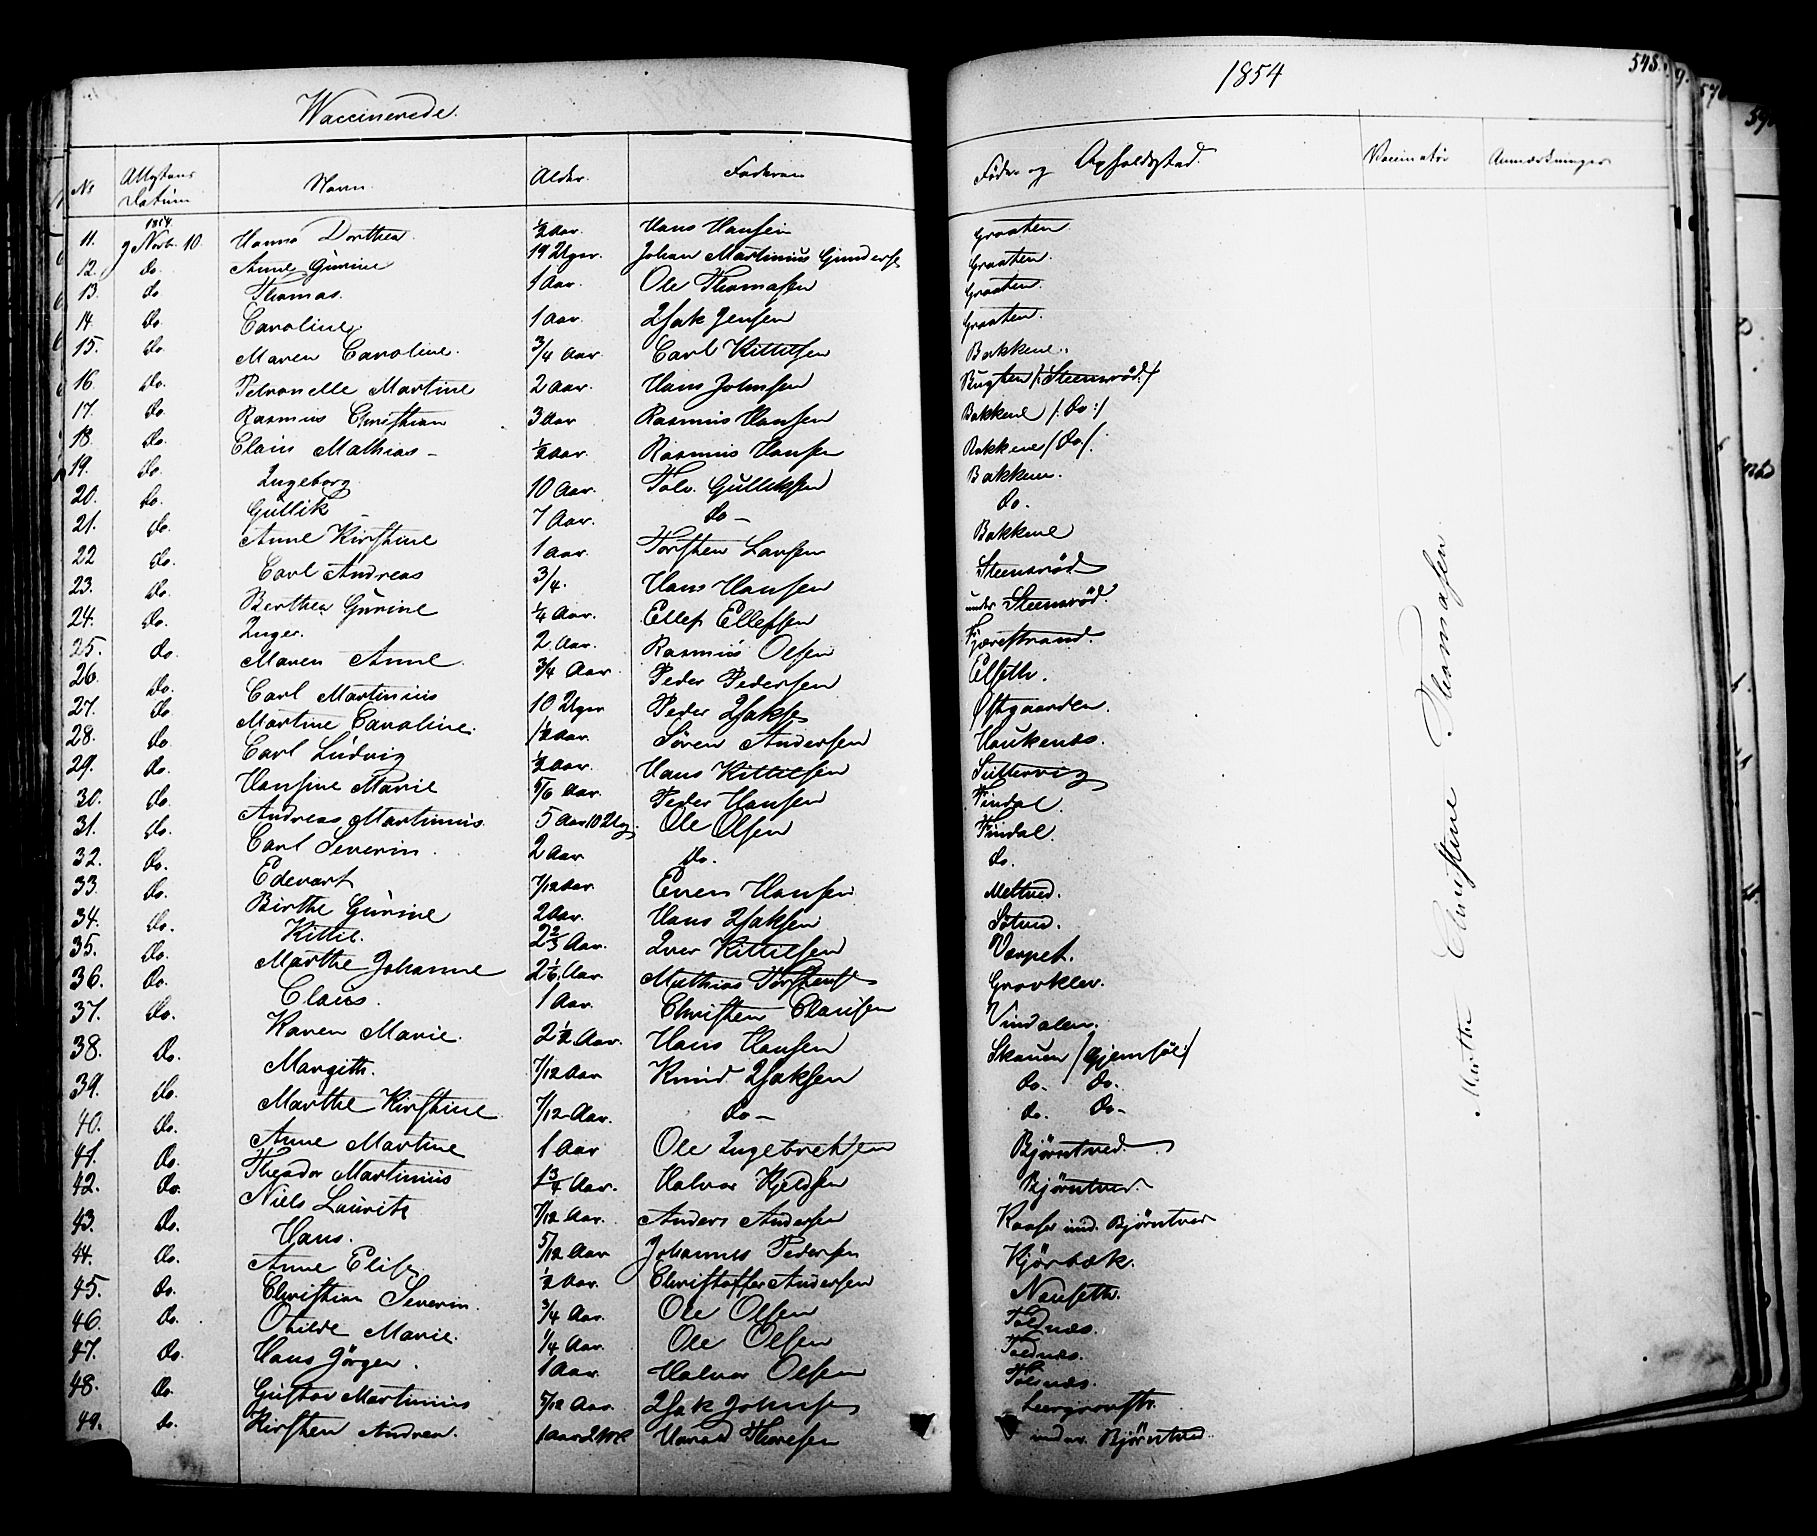 Waccinerede.
1854
548.
No
Attestens Datum
Navn.
Alder.
Faderen
Føde- og Opholdssted.
Vaccinatør
Anmærkninger
1854
11. 9 Novb. 10. Hanna Dorthea. ½ Aar. Hans Hansen Graaten.
12. do. Anne Gurine 19 Uger. Johan Martinius Gunders. Graaten.
13. do Thomas. 1 Aar. Ole Thomasen Graaten.
14 do. Caroline 1 Aar. Isak Jensen Graaten.
15. do. Maren Caroline. 3/4 Aar. Carl Kittilsen Bakkene.
16. do. Petronelle Martine 2 Aar. Hans Johnsen Bugten /: Steensrød :/
17. do Rasmus Christian 3 Aar Rasmus Hansen Bakkene /: do :/
18. do. Claus Mathias – ½ Aar. Rasmus Hansen Bakkene /: do /:
19. do. Ingeborg. 10 Aar. Tolv. Gulliksen Bakkene.
20. do. Gullik 7 Aar. do – do.
21. do. Anne Kirstine 1 Aar. Torsten Larsen Bakkene
22 do. Carl Andreas 3/4. Hans Hansen Steensrød
23. do. Berthea Gurine ¼ Aar. Ellef Ellefsen under Steensrød.
24. do. Inger. 2 Aar. Rasmus Olsen Fjærestrand.
25. do. Maren Anne. 3/4 Aar. Peder Pedersen Elseth.
26. do. Carl Martinius 10 Uger Peder Isaks Østgaarden.
27. do Martine Caroline. 1½ Aar. Søren Andersen Haukenæs.
28. do. Carl Ludvig ½ Aar. Hans Kittilsen
29. do. Hansine Marie 5/6 Aar. Peder Hansen Findal.
30. do. Andreas Martinius. 5 Aar 10 Ug. Ole Olsen Findal.
31. do. Carl Severin. 2 Aar do. do.
32. do. Edevart 7/12 Aar. Even Hansen Meltved.
33. do. Birthe Gurine 2 Aar. Hans Isaksen
34. do. Kittil. 2 2/3 Aar. Iver Kittilsen Værpet.
35. do. Marthe Johanne 2 1/6 Aar. Mathias Torstens Gravklev.
36. do. Claus. 1 Aar. Christen Clausen Vindalen.
37. do. Karen Marie. 2½ Aar. Hans Hansen Skauen /: Gjemsøe :/
38. do. Margith. 7/12 Aar Knud Isaksen do. do.
39. do. Marthe Kirstine 7/12 Aar. do – do. do –
40. do. Anne Martine 1 Aar Ole Ingebretsen Bjørntved.
41. do. Theodor Martinius 1 3/4 Aar. Halvor Kjeldsen Bjørntved.
42. do. Niels Laurits 7/12 Aar. Anders Andersen Kaasa und. Bjørntved
43. do. Hans. 5/12 Aar Johannes Pedersen Kjørbæk.
44. do. Anne Elise ½ Aar. Christoffer Andersen Nenseth.
45. do. Christian Severin. 3/4 Aar. Ole Olsen Toldnæs.
46 do. Othilde Marie. ¼ Aar. Ole Olsen Toldnæs.
47. do. Hans Jørgen. 1 Aar. Halvor Olsen Tolsnæs.
48. do. Gustav Martinius 5/12 Aar. Isak Johnsen
49. do. Kirsten Andrea. 1 Aar 2 Harald Thoresen under Bjørntved.
Marthe Christine Thomasen